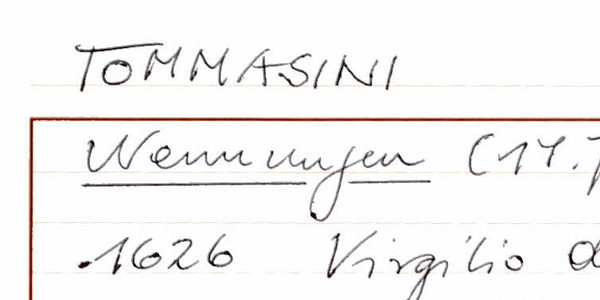 TOMMASINI
Nennungen (17.
.1626 Virgilio d